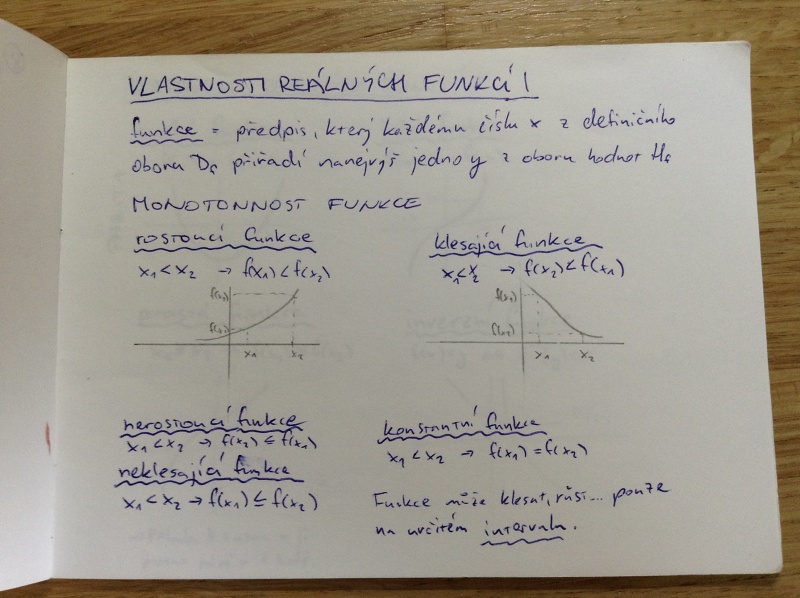 VLASTNOSTI REÁLNÝCH FUNKCÍ I
funkce = předpis, který každému číslu x z definičního
oboru Df přiřadí nanejvýš jedno y z oboru hodnot Hf
MONOTONNOST FUNKCE
rostoucí funkce
x₁ < x₂ → f(x₁) < f(x₂)
f(x₂)
f(x₁)
x₁ x₂
klesající funkce
x₁ < x₂ → f(x₂) < f(x₁)
f(x₁)
f(x₂)
x₁ x₂
nerostoucí funkce
x₁ < x₂ → f(x₂) ≤ f(x₁)
neklesající funkce
x₁ < x₂ → f(x₁) ≤ f(x₂)
konstantní funkce
x₁ < x₂ → f(x₁) = f(x₂)
Funkce může klesat, růst... pouze
na určitém intervalu.